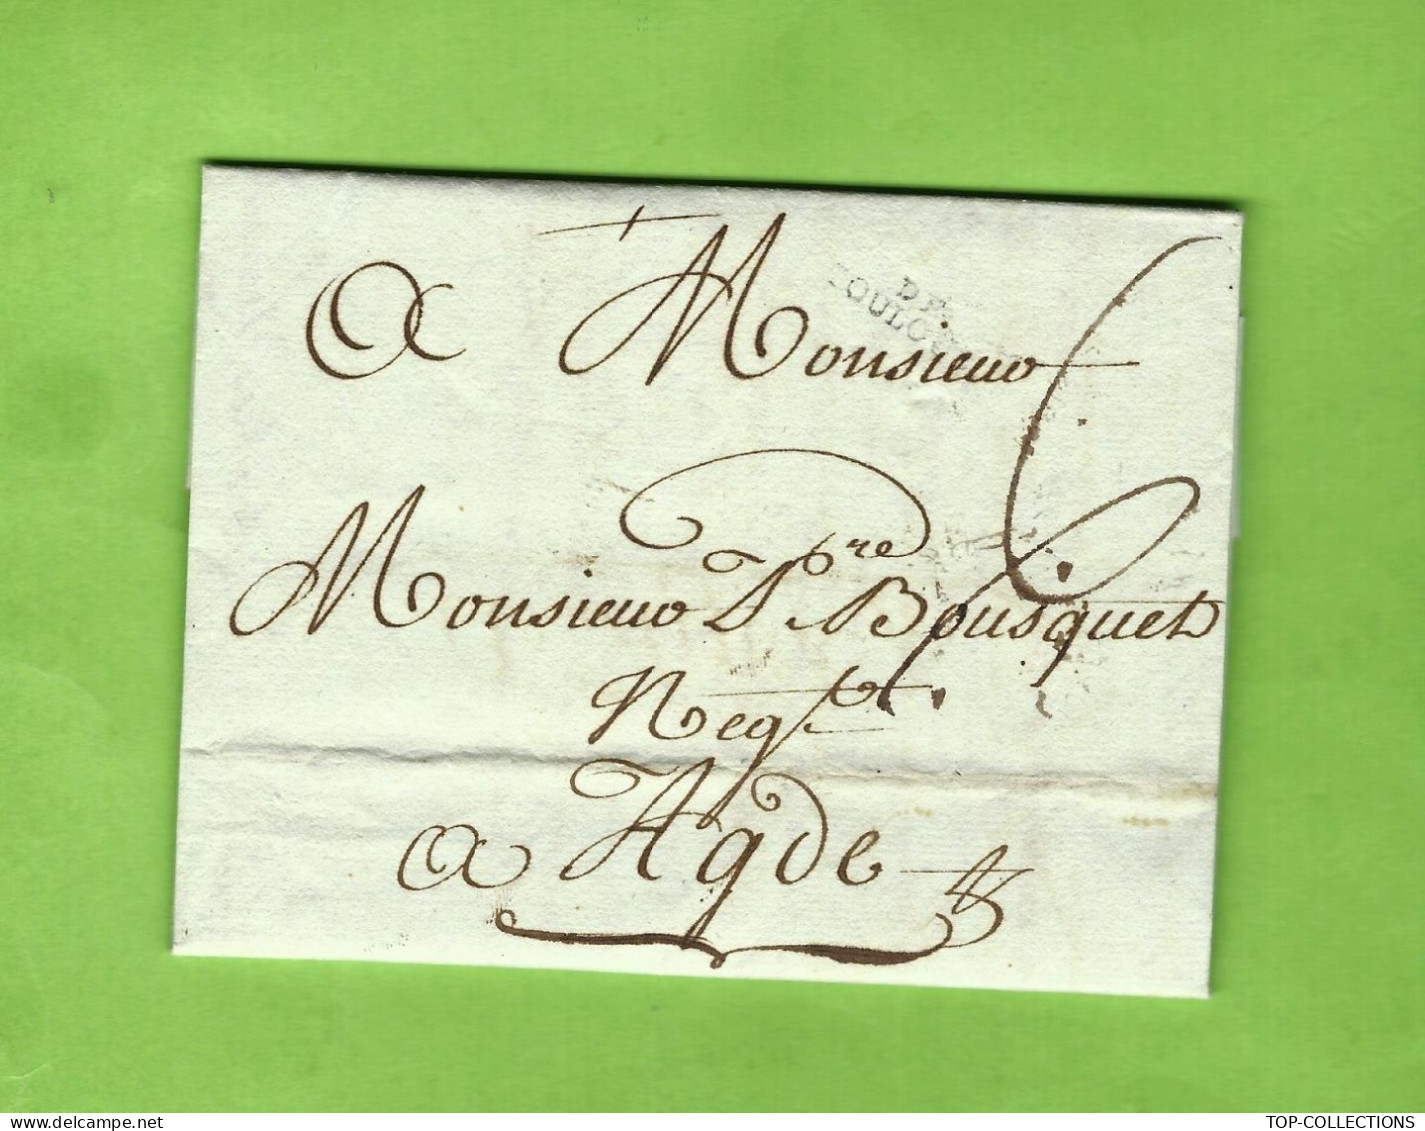 A Monsieur
DE
TOULOUSE
6
Monsieur Pre Bousquet
Negt
a Agde
https://www.delcampe.net
TOP-COLLECTIONS